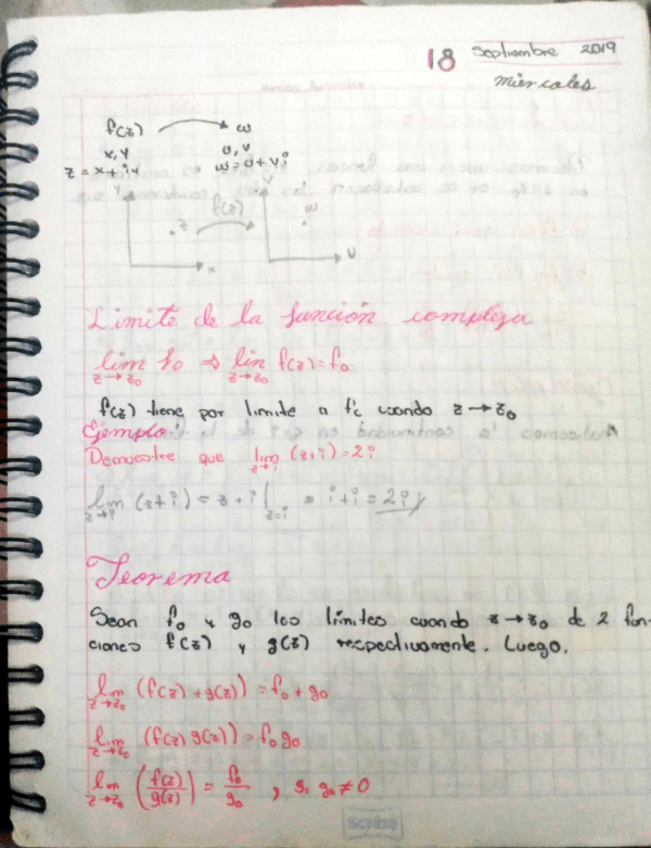 18 Septiembre 2019
Miércoles
f(z) → w
x, y u, v
z = x + iy w = u + vi
y f(z) v
z w
x u
Limite de la función compleja
lim f₀ ⇒ lim f(z) = f₀
z→z₀ z→z₀
f(z) tiene por limite a cuando z → z₀
Ejemplo
Demuestre que lim (z+i) = 2i
z→i
lim (z+i) = z + i | = i + i = 2i
z→i z=i
Teorema
Sean f₀ y g₀ los límites cuando z → z₀ de 2 fun-
ciones f(z) y g(z) respectivamente. Luego.
lim (f(z) + g(z)) = f₀ + g₀
z→z₀
lim (f(z) g(z)) = f₀ g₀
z→z₀
lim (f(z)/g(z)) = f₀/g₀ , si g₀ ≠ 0
z→z₀
Scribe